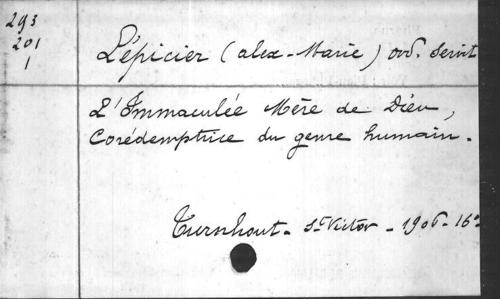 293
201
1
L'épicier (alex-Marie) ord. Servit
L'Immaculée Mère de Dieu,
Corédemptrice du genre humain.
Turnhout - St Victor - 1906 - 16º